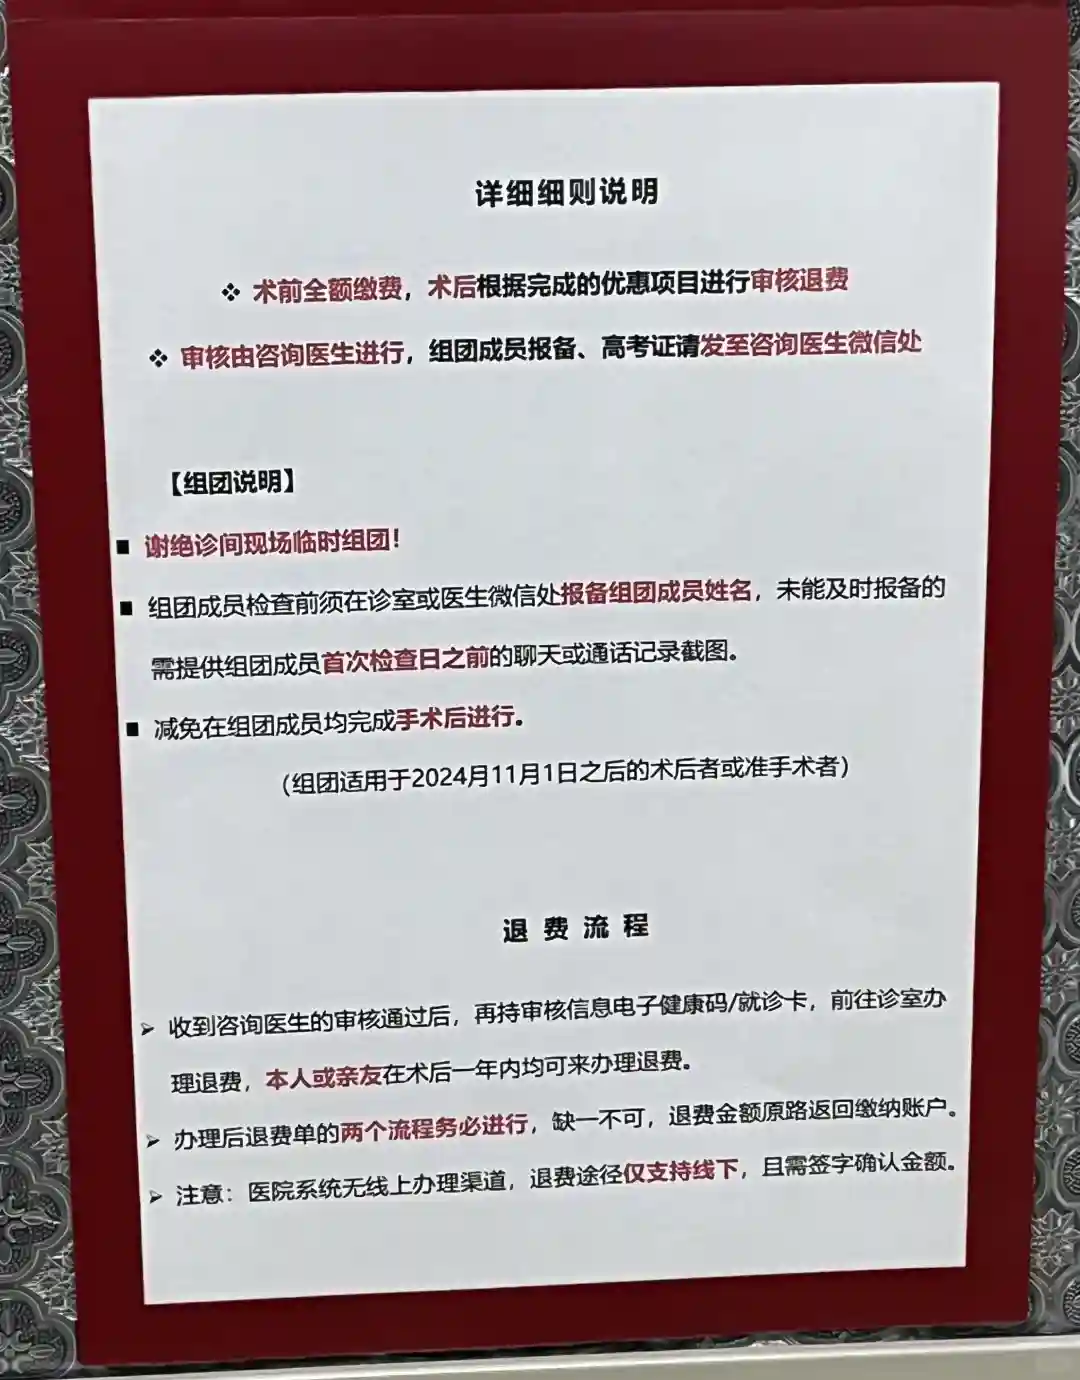 详细细则说明
❖ 术前全额缴费，术后根据完成的优惠项目进行审核退费
❖ 审核由咨询医生进行，组团成员报备、高考证请发至咨询医生微信处
【组团说明】
■ 谢绝诊间现场临时组团！
■ 组团成员检查前须在诊室或医生微信处报备组团成员姓名，未能及时报备的
需提供组团成员首次检查日之前的聊天或通话记录截图。
■ 减免在组团成员均完成手术后进行。
（组团适用于2024月11月1日之后的术后者或准手术者）
退费流程
➢ 收到咨询医生的审核通过后，再持审核信息电子健康码/就诊卡，前往诊室办
理退费，本人或亲友在术后一年内均可来办理退费。
➢ 办理后退费单的两个流程务必进行，缺一不可，退费金额原路返回缴纳账户。
➢ 注意：医院系统无线上办理渠道，退费途径仅支持线下，且需签字确认金额。